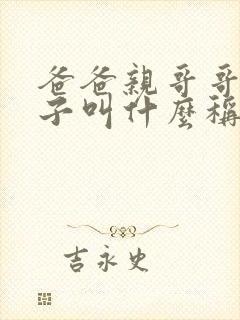 爸爸親哥哥
子叫什麼稱
吉永史